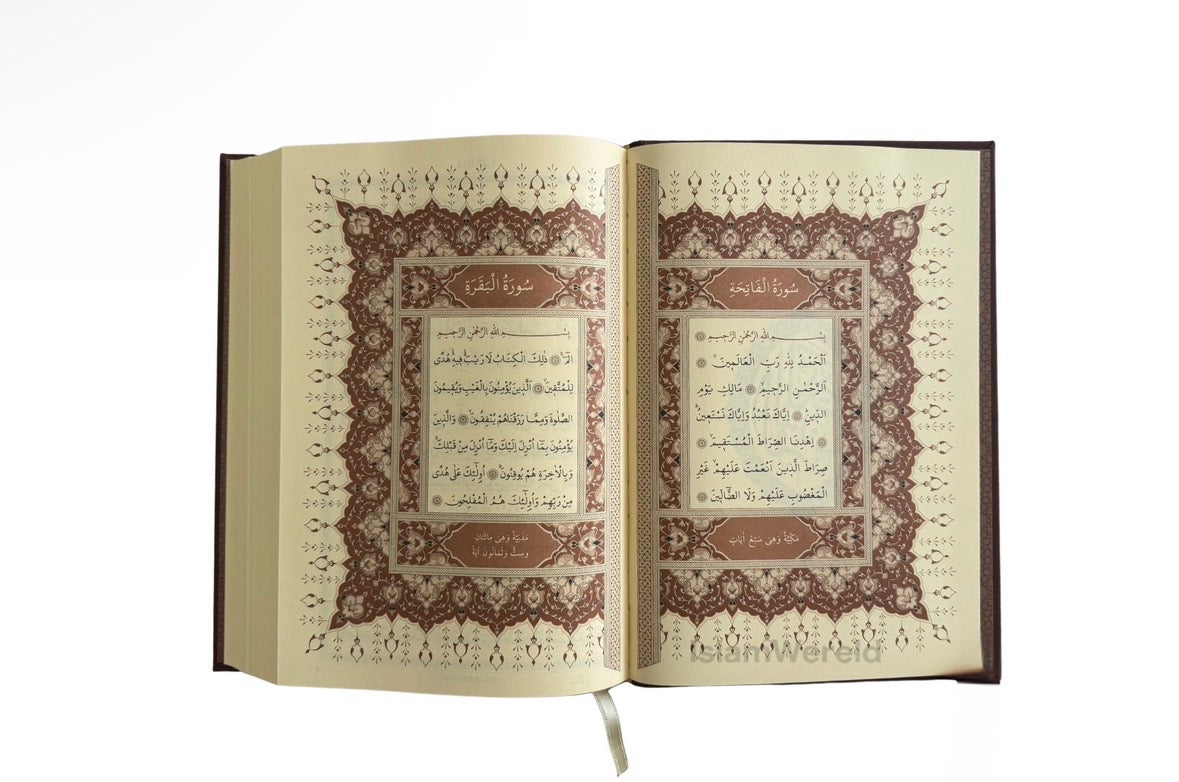 سُورَةُ الْفَاتِحَةِ
بِسْمِ اللهِ الرَّحْمٰنِ الرَّحِيمِ
اَلْحَمْدُ لِلّٰهِ رَبِّ الْعَالَمِينَ
اَلرَّحْمٰنِ الرَّحِيمِ مَالِكِ يَوْمِ
الدِّينِ اِيَّاكَ نَعْبُدُ وَاِيَّاكَ نَسْتَعِينُ
اِهْدِنَا الصِّرَاطَ الْمُسْتَقِيمَ
صِرَاطَ الَّذِينَ اَنْعَمْتَ عَلَيْهِمْ غَيْرِ
الْمَغْضُوبِ عَلَيْهِمْ وَلَا الضَّٓالِّينَ
مَكِّيَّةٌ وَهِىَ سَبْعُ اٰيَاتٍ
سُورَةُ الْبَقَرَةِ
بِسْمِ اللهِ الرَّحْمٰنِ الرَّحِيمِ
الٓمٓ ذٰلِكَ الْكِتَابُ لَا رَيْبَ فِيهِ هُدًى
لِلْمُتَّقِينَ اَلَّذِينَ يُؤْمِنُونَ بِالْغَيْبِ وَيُقِيمُونَ
الصَّلٰوةَ وَمِمَّا رَزَقْنَاهُمْ يُنْفِقُونَ وَالَّذِينَ
يُؤْمِنُونَ بِمَٓا اُنْزِلَ اِلَيْكَ وَمَٓا اُنْزِلَ مِنْ قَبْلِكَ
وَبِالْاٰخِرَةِ هُمْ يُوقِنُونَ اُولٰٓئِكَ عَلٰى هُدًى
مِنْ رَبِّهِمْ وَاُولٰٓئِكَ هُمُ الْمُفْلِحُونَ
مَدَنِيَّةٌ وَهِىَ مِائَتَانِ
وَسِتٌّ وَثَمَانُونَ اٰيَةً
IslamWereld